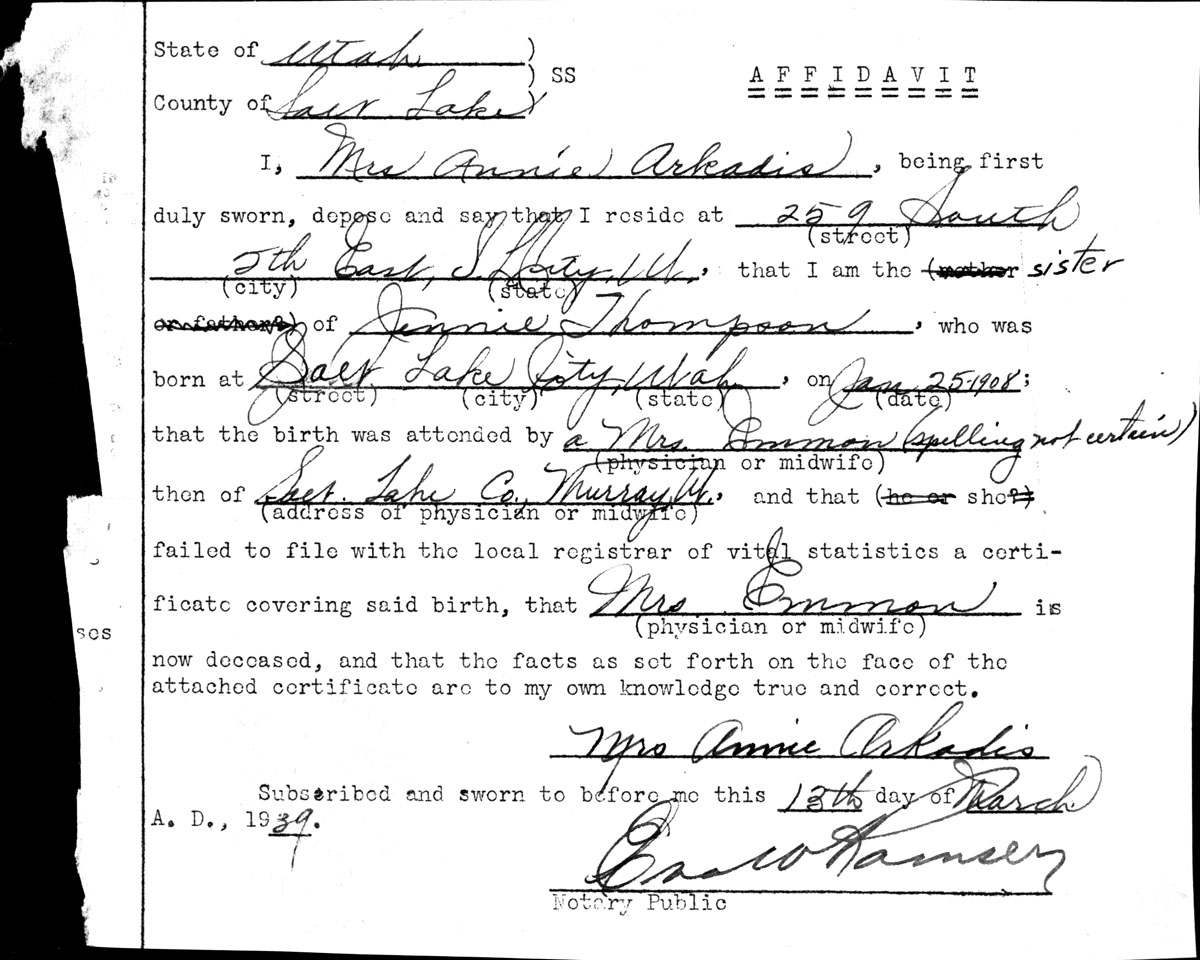 State of Utah )
) SS
AFFIDAVIT
County of Salt Lake )
I, Mrs Annie Arkadis, being first
duly sworn, depose and say that I reside at 259 South
(street)
5th East, S. L. City, Ut., that I am the (mother sister
(city) (state)
or father?) of Jennie Thompson, who was
born at Salt Lake City, Utah, on Jan 25-1908;
(street) (city) (state) (date)
that the birth was attended by a Mrs. Emmon (spelling not certain)
(physician or midwife)
then of Salt Lake Co., Murray, U., and that (he or she?)
(address of physician or midwife)
failed to file with the local registrar of vital statistics a certi-
ficate covering said birth, that Mrs. Emmon is
(physician or midwife)
now deceased, and that the facts as set forth on the face of the
ses
attached certificate are to my own knowledge true and correct.
Mrs Annie Arkadis
Subscribed and sworn to before me this 13th day of March
A. D., 1939.
Ramsey
Notary Public